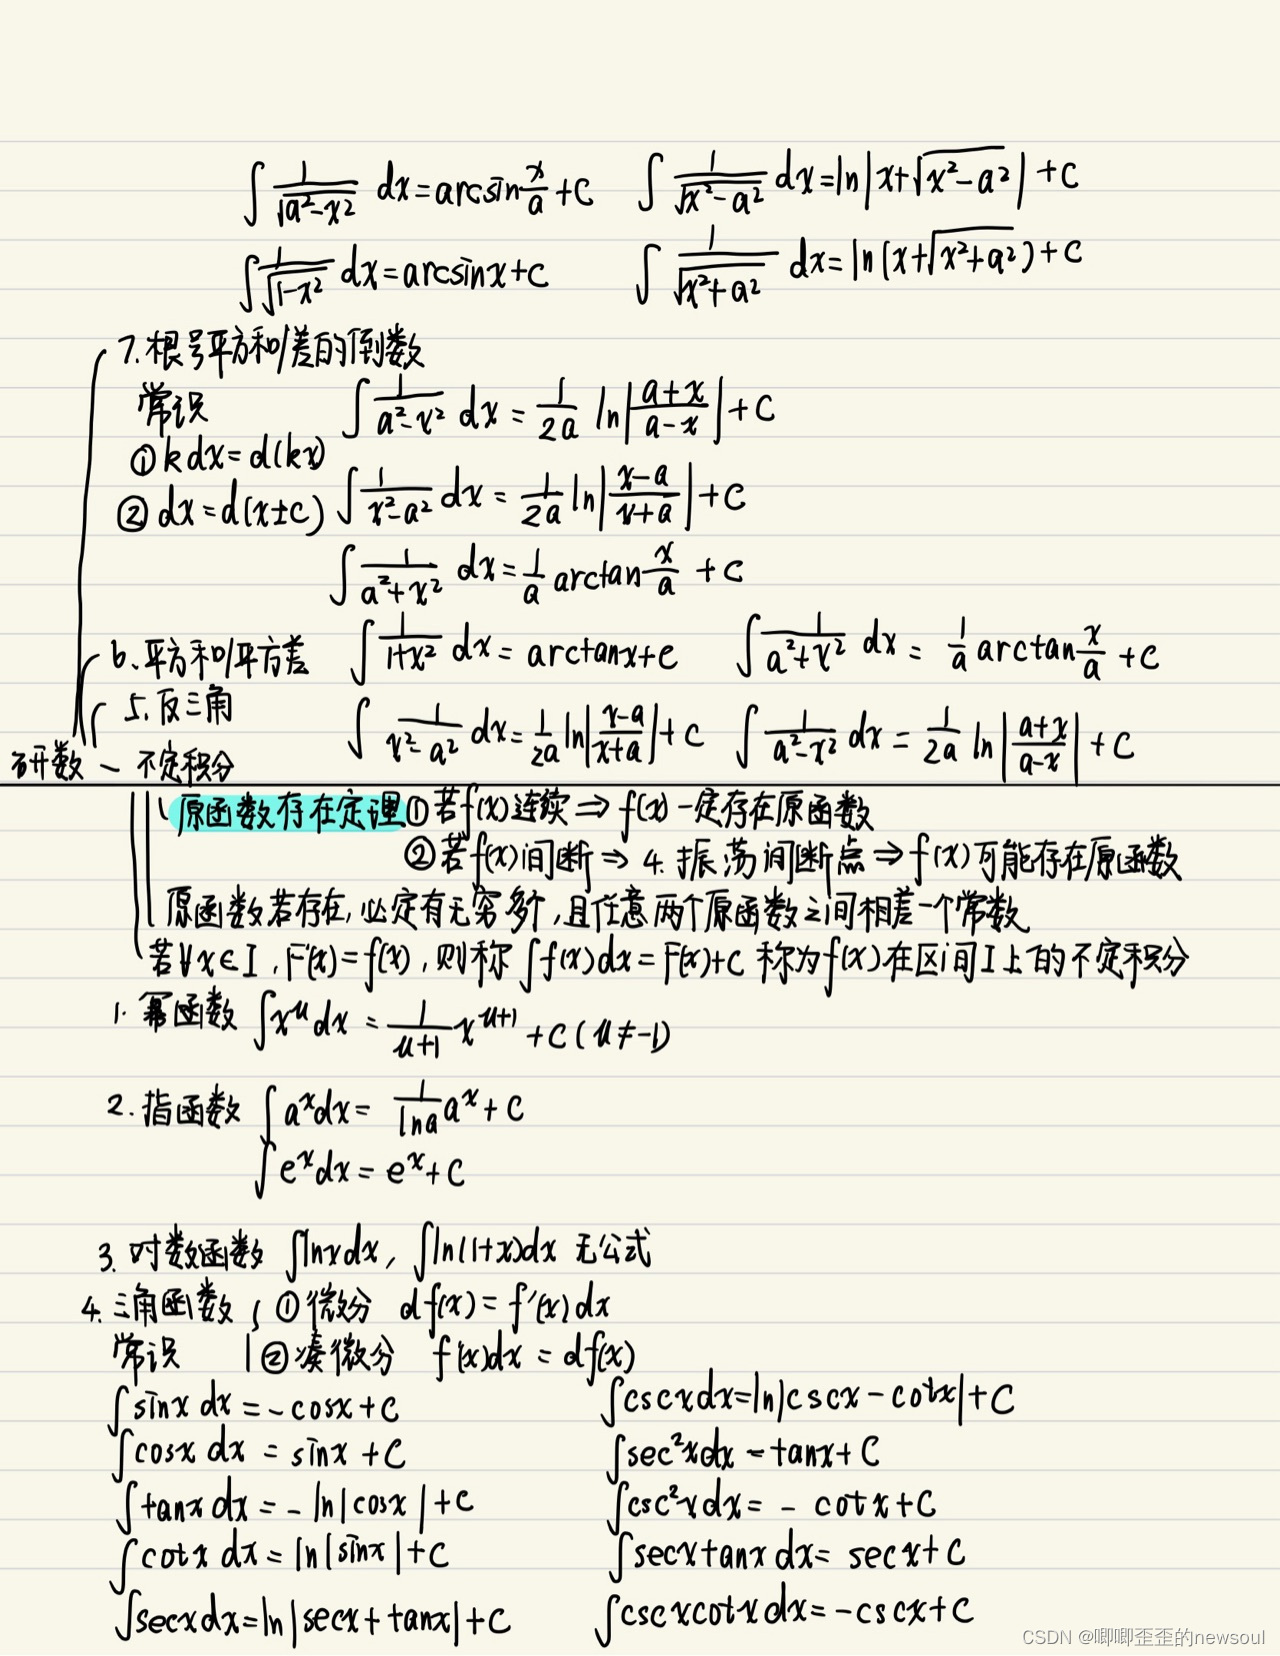 ∫ 1/√(a²-x²) dx = arcsin x/a + C    ∫ 1/√(x²-a²) dx = ln|x+√(x²-a²)| + C
∫ 1/√(1-x²) dx = arcsinx + C    ∫ 1/√(x²+a²) dx = ln(x+√(x²+a²)) + C
7. 根号平方和/差的倒数
常识    ∫ 1/(a²-x²) dx = 1/2a ln|(a+x)/(a-x)| + C
① kdx = d(kx)
② dx = d(x±c)    ∫ 1/(x²-a²) dx = 1/2a ln|(x-a)/(x+a)| + C
∫ 1/(a²+x²) dx = 1/a arctan x/a + C
6. 平方和/平方差    ∫ 1/(1+x²) dx = arctanx + C    ∫ 1/(a²+x²) dx = 1/a arctan x/a + C
5. 反三角    ∫ 1/(x²-a²) dx = 1/2a ln|(x-a)/(x+a)| + C    ∫ 1/(a²-x²) dx = 1/2a ln|(a+x)/(a-x)| + C
研数 - 不定积分
原函数存在定理 ① 若f(x)连续 ⇒ f(x)一定存在原函数
② 若f(x)间断 ⇒ 4. 振荡间断点 ⇒ f(x)可能存在原函数
原函数若存在, 必定有无穷多个, 且任意两个原函数之间相差一个常数
若∀x∈I, F'(x)=f(x), 则称 ∫f(x)dx = F(x)+C 称为f(x)在区间I上的不定积分
1. 幂函数 ∫x^u dx = 1/(u+1) x^(u+1) + C (u≠-1)
2. 指函数 ∫a^x dx = 1/lna a^x + C
∫e^x dx = e^x + C
3. 对数函数 ∫lnxdx, ∫ln(1+x)dx 无公式
4. 三角函数 ① 微分 df(x) = f'(x)dx
常识 ② 凑微分 f'(x)dx = df(x)
∫sinx dx = -cosx + C    ∫cscxdx = ln|cscx - cotx| + C
∫cosx dx = sinx + C    ∫sec²xdx = tanx + C
∫tanx dx = -ln|cosx| + C    ∫csc²xdx = -cotx + C
∫cotx dx = ln|sinx| + C    ∫secxtanxdx = secx + C
∫secxdx = ln|secx + tanx| + C    ∫cscxcotxdx = -cscx + C
CSDN @唧唧歪歪的newsoul